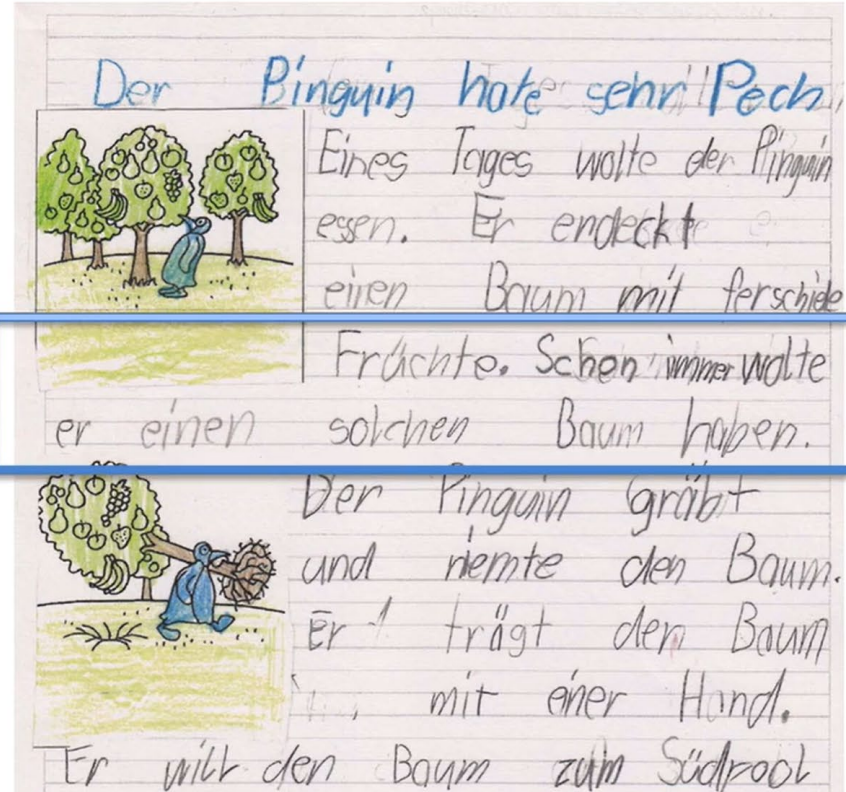 Der Pinguin hate sehr Pech
Eines Tages wolte der Pinguin
essen. Er endeckt
einen Baum mit ferschiede
Früchte. Schon immer wolte
er einen solchen Baum haben.
Der Pinguin gräbt
und niemte den Baum.
Er trägt den Baum
mit einer Hand.
Er will den Baum zum Südpool